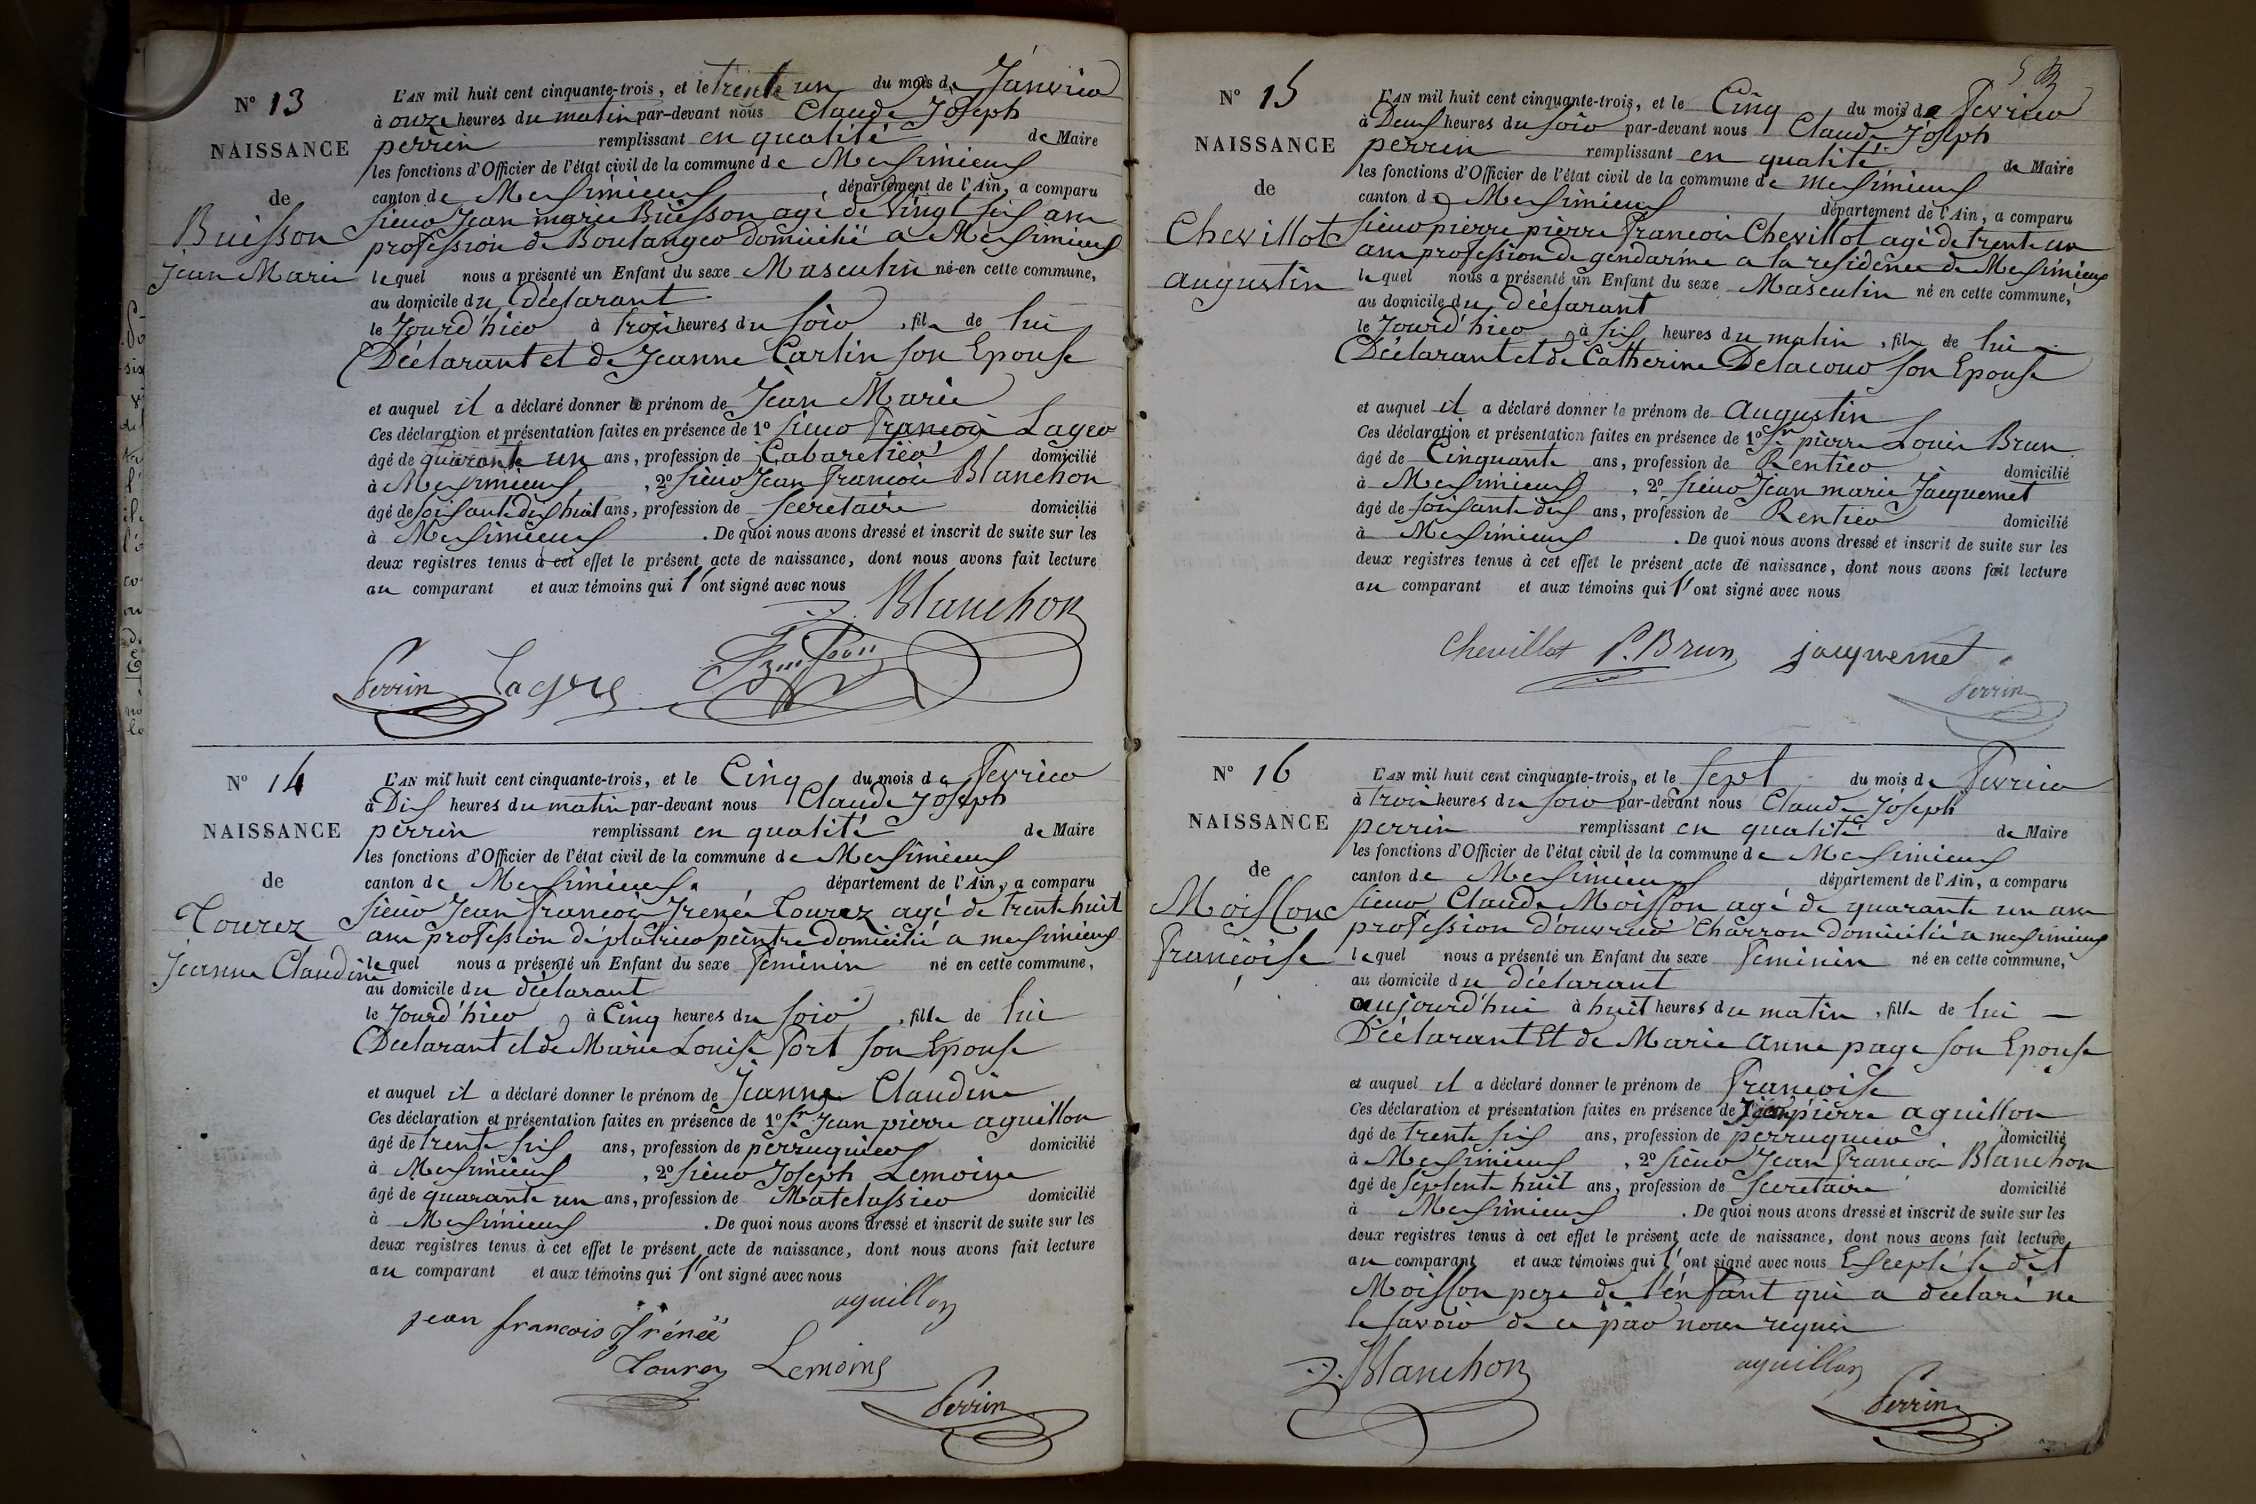 N° 13
NAISSANCE
de
Buisson
Jean Marie
L'AN mil huit cent cinquante-trois, et le trente un du mois de Janvier
à onze heures du matin par-devant nous Claude Joseph
perrin remplissant en qualité de Maire
les fonctions d'Officier de l'état civil de la commune de Meximieux
canton de Meximieux, département de l'Ain, a comparu
sieur Jean marie Buisson agé de vingt six ans
profession de Boulanger domicilié a Meximieux
lequel nous a présenté un Enfant du sexe Masculin né en cette commune,
au domicile du déclarant
le Jourd'hier à trois heures du soir, fils de lui
Déclarant et de Jeanne Carlin son Epouse
et auquel il a déclaré donner le prénom de Jean Marie
Ces déclaration et présentation faites en présence de 1° sieur francois Lager
âgé de quarante un ans, profession de Cabaretier domicilié
à Meximieux, 2° sieur Jean francois Blanchon
âgé de soixante dix huit ans, profession de secretaire domicilié
à Meximieux. De quoi nous avons dressé et inscrit de suite sur les
deux registres tenus à cet effet le présent acte de naissance, dont nous avons fait lecture
au comparant et aux témoins qui l'ont signé avec nous
Blanchon
Perrin Buisson
N° 14
NAISSANCE
de
Tourez
Jeanne Claudine
L'AN mil huit cent cinquante-trois, et le Cinq du mois de fevrier
à Dix heures du matin par-devant nous Claude Joseph
perrin remplissant en qualité de Maire
les fonctions d'Officier de l'état civil de la commune de Meximieux
canton de Meximieux, département de l'Ain, a comparu
sieur Jean francois Irenée Tourez agé de trente huit
ans profession de platrier peintre domicilié a meximieux
lequel nous a présenté un Enfant du sexe feminin né en cette commune,
au domicile du déclarant
le Jourd'hier à Cinq heures du soir, fille de lui
Déclarant et de Marie Louise fort son Epouse
et auquel il a déclaré donner le prénom de Jeanne Claudine
Ces déclaration et présentation faites en présence de 1° Sr Jean pierre aguillon
âgé de trente six ans, profession de perruquier domicilié
à Meximieux, 2° sieur Joseph Lemoine
âgé de quarante un ans, profession de Matelassier domicilié
à Meximieux. De quoi nous avons dressé et inscrit de suite sur les
deux registres tenus à cet effet le présent acte de naissance, dont nous avons fait lecture
au comparant et aux témoins qui l'ont signé avec nous
aguillon
jean francois irénée
Tourez Lemoine
Perrin
5
N° 15
NAISSANCE
de
Chevillot
augustin
L'AN mil huit cent cinquante-trois, et le Cinq du mois de fevrier
à Deux heures du soir par-devant nous Claude Joseph
perrin remplissant en qualité de Maire
les fonctions d'Officier de l'état civil de la commune de meximieux
canton de Meximieux département de l'Ain, a comparu
sieur pierre pierre francois Chevillot agé de trente un
ans profession de gendarme a la residence de Meximieux
lequel nous a présenté un Enfant du sexe Masculin né en cette commune,
au domicile du déclarant
le Jourd'hier à six heures du matin, fils de lui
Déclarant et de Catherine Delacour son Epouse
et auquel il a déclaré donner le prénom de augustin
Ces déclaration et présentation faites en présence de 1° Sr pierre Louis Brun
âgé de Cinquante ans, profession de Rentier domicilié
à Meximieux, 2° sieur Jean marie Jacquemet
âgé de soixante dix ans, profession de Rentier domicilié
à Meximieux. De quoi nous avons dressé et inscrit de suite sur les
deux registres tenus à cet effet le présent acte de naissance, dont nous avons fait lecture
au comparant et aux témoins qui l'ont signé avec nous
Chevillot P. Brun jacquemet
Perrin
N° 16
NAISSANCE
de
Moisson
françoise
L'AN mil huit cent cinquante-trois, et le sept du mois de fevrier
à trois heures du soir par-devant nous Claude Joseph
perrin remplissant en qualité de Maire
les fonctions d'Officier de l'état civil de la commune de Meximieux
canton de Meximieux département de l'Ain, a comparu
sieur Claude Moisson agé de quarante un ans
profession d'ouvrier Charron domicilié a meximieux
lequel nous a présenté un Enfant du sexe feminin né en cette commune,
au domicile du déclarant
aujourd'hui à huit heures du matin, fille de lui
Déclarant Et de Marie anne page son Epouse
et auquel il a déclaré donner le prénom de françoise
Ces déclaration et présentation faites en présence de Jean pierre aguillon
âgé de trente six ans, profession de perruquier domicilié
à Meximieux, 2° sieur Jean francois Blanchon
âgé de septente huit ans, profession de secretaire domicilié
à Meximieux. De quoi nous avons dressé et inscrit de suite sur les
deux registres tenus à cet effet le présent acte de naissance, dont nous avons fait lecture
au comparant et aux témoins qui l'ont signé avec nous Excepté le dit
Moisson pere de l'enfant qui a declaré ne
le savoir de ce par nous requis
Blanchon aguillon
Perrin